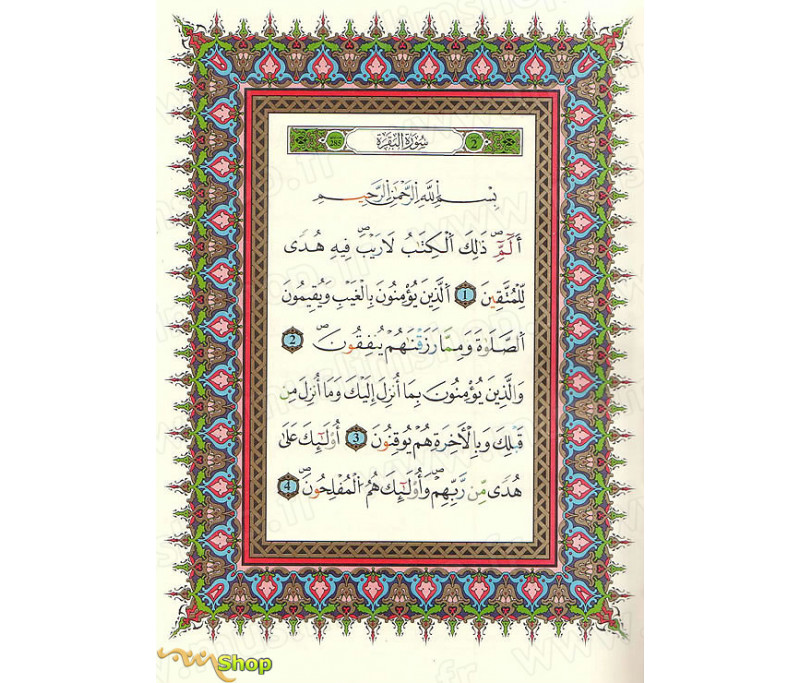 2 سُورَةُ الْبَقَرَةِ 285
بِسْمِ اِللَّهِ اِلرَّحْمَٰنِ اِلرَّحِيمِ
أَلَٓمِّٓۖ ذَٰلِكَ اَلْكِتَٰبُ لَا رَيْبَۖ فِيهِ هُدىً
لِّلْمُتَّقِينَ 1 اَلذِينَ يُؤْمِنُونَ بِالْغَيْبِ وَيُقِيمُونَ
اَلصَّلَوٰةَ وَمِمَّا رَزَقْنَٰهُمْ يُنفِقُونَۖ 2
وَالذِينَ يُؤْمِنُونَ بِمَا أُنزِلَ إِلَيْكَ وَمَا أُنزِلَ مِن
قَبْلِكَ وَبِالْأَخِرَةِ هُمْ يُوقِنُونَ 3 أُوْلَٰٓئِكَ عَلَىٰ
هُدىً مِّن رَّبِّهِمْۖ وَأُوْلَٰٓئِكَ هُمُ اَلْمُفْلِحُونَۖ 4
Shop